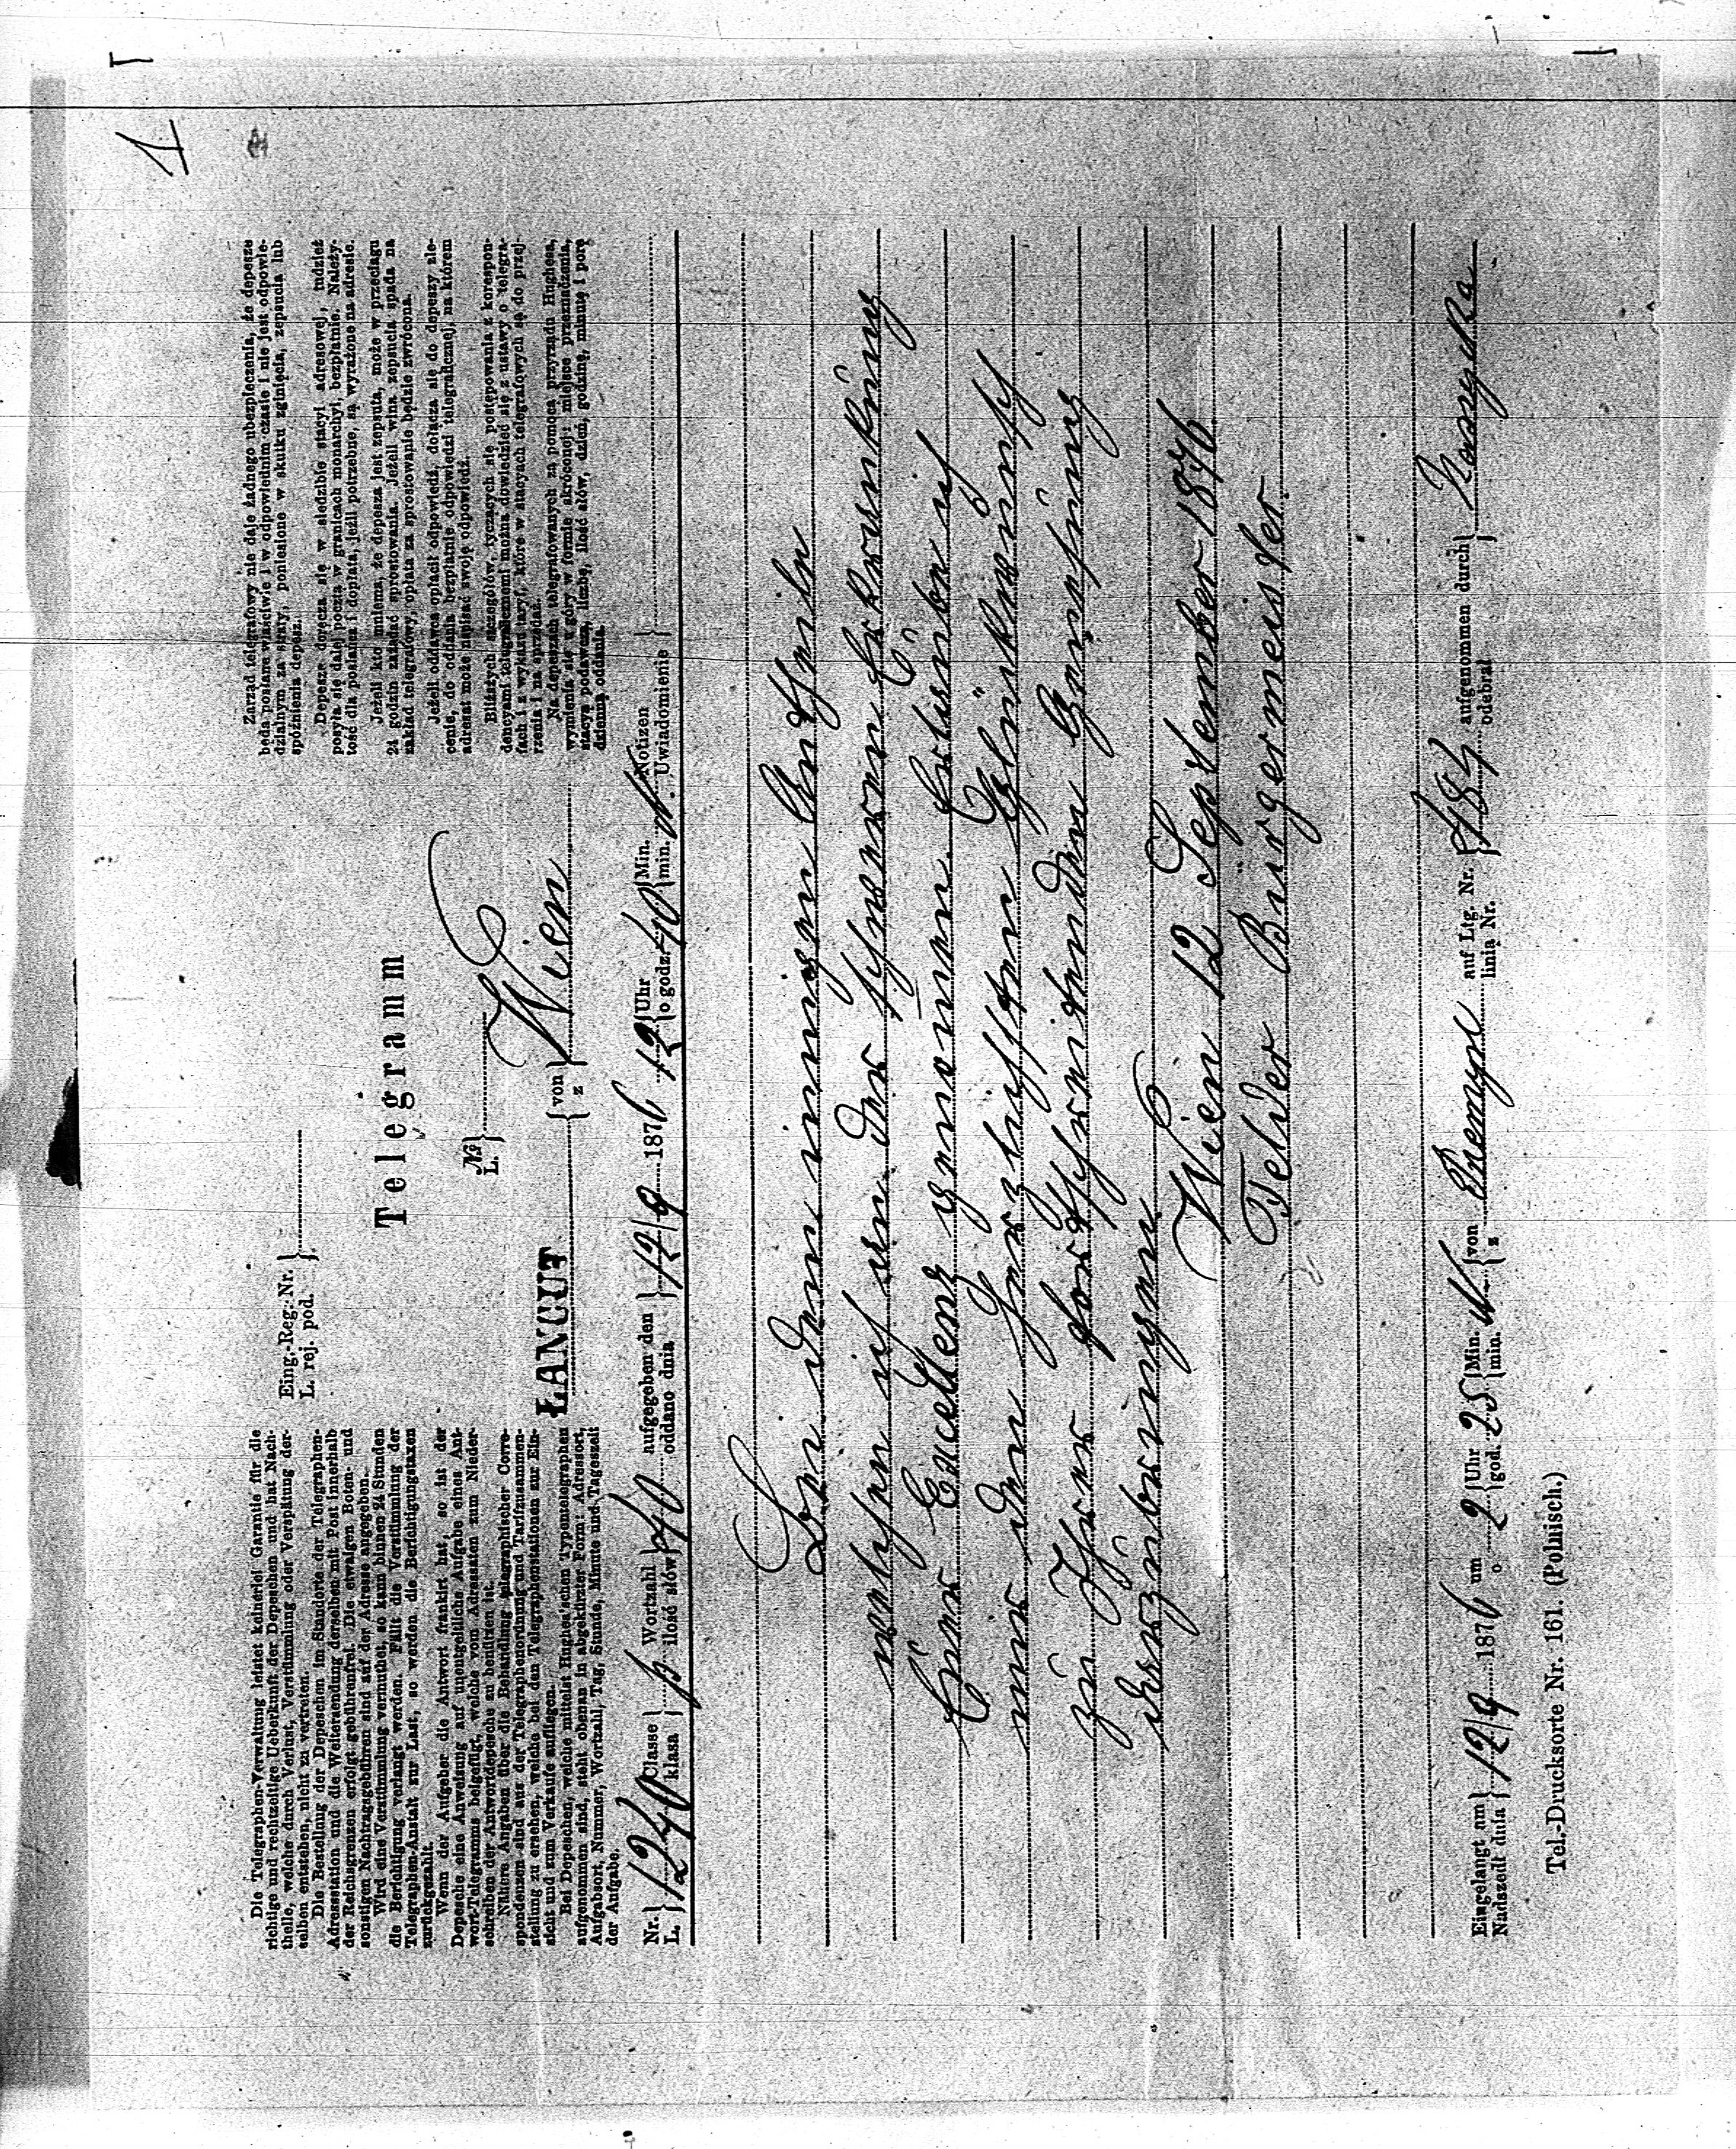 1
Die Telegraphen-Verwaltung leistet keinerlei Garantie für die
richtige und rechtzeitige Ueberkunft der Depeschen und hat Nach-
theile, welche durch Verlust, Verstümmlung oder Verspätung der-
selben entstehen, nicht zu vertreten.
Die Bestellung der Depeschen im Standorte der Telegraphen-
Adressstation und die Weitersendung derselben mit Post innerhalb
der Reichsgrenzen erfolgt gebührenfrei. Die etwaigen Boten- und
sonstigen Nachtragsgebühren sind auf der Adresse angegeben.
Wird eine Verstümmlung vermuthet, so kann binnen 24 Stunden
die Berichtigung verlangt werden. Fällt die Verstümmlung der
Telegraphen-Anstalt zur Last, so werden die Berichtigungstaxen
zurückgezahlt.
Wenn der Aufgeber die Antwort frankirt hat, so ist der
Depesche eine Anweisung auf unentgeltliche Aufgabe eines Ant-
wort-Telegramms beigefügt, welche vom Adressaten zum Nieder-
schreiben der Antwortdepesche zu benützen ist.
Nähere Angaben über die Behandlung telegraphischer Corre-
spondenzen sind aus der Telegraphenordnung und Tarifzusammen-
stellung zu ersehen, welche bei den Telegraphenstationen zur Ein-
sicht und zum Verkaufe aufliegen.
Bei Depeschen, welche mittelst Hughes'schen Typentelegraphen
aufgenommen sind, steht obenan in abgekürzter Form: Adressort,
Aufgabsort, Nummer, Wortzahl, Tag, Stunde, Minute und Tageszeit
der Aufgabe.
Eing.-Reg.-Nr.
L. rej. pod.
Telegramm
№
L.
ŁANCUT
von
z
Wien
Zarząd telegrafowy nie daje żadnego ubezpieczenia, że depesze
będą posłane właściwie i w odpowiednim czasie i nie jest odpowie-
dzialnym za straty, poniesione w skutku zginięcia, zepsucia lub
spóźnienia depesz.
Depesze doręcza się w siedzibie stacyi adresowej, tudzież
posyła się dalej pocztą w granicach monarchyi, bezpłatnie. Należy-
tość dla posłańca i dopłata, jeźli potrzebne, są wyrażone na adresie.
Jeżeli kto mniema, że depesza jest zepsuta, może w przeciągu
24 godzin zażądać sprostowania. Jeżeli wina zepsucia spada na
zakład telegrafowy, opłata za sprostowanie będzie zwrócona.
Jeżeli oddawca opłacił odpowiedź, dołącza się do depeszy zle-
cenie, do oddania bezpłatnie odpowiedzi telegraficznej, na którem
adresat może napisać swoję odpowiedź.
Bliższych szczegółów, tyczących się postępowania z korespon-
dencyami telegraficznemi można dowiedzieć się z ustawy o telegra-
fach i z wykazu taryf, które w stacyach telegrafowych są do przej-
rzenia i na sprzedaż.
Na depeszach telegrafowanych za pomocą przyrządu Hughesa,
wymienia się u góry w formie skróconej: miejsce przeznaczenia,
stacyą podawczą, liczbę, ilość słów, dzień, godzinę, minutę i porę
dzienną oddania.
Nr. L. 1240 Classe klasa p Wortzahl ilość słów 40 aufgegeben den oddano dnia 12/9 1876 12 Uhr o godz. 40 Min. min. N. Notizen Uwiadomienie
Bei dem innigen Antheile
welchen ich an der schweren Erkrankung
Euer Excellenz genommen Erlaube ich
mir den herzlichsten Glückwunsch
zu Ihrer fortschreitenden Genesung
darzubringen
Wien 12 September 1876
Felder Bürgermeister
Eingelangt am Nadszedł dnia 12/9 1876 um o 2 Uhr god. 25 Min. min. N. von z Przemysl auf Ltg. Nr. linią Nr. 484 aufgenommen durch odebrał
Tel.-Drucksorte Nr. 161. (Polnisch.)